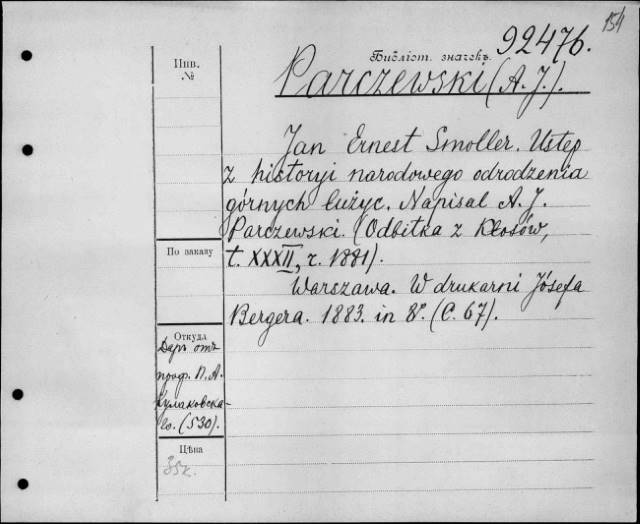 154
92476.
Инв.
№
Библіот. значекъ.
Parczewski (A. J.).
Jan Ernest Smoller. Ustęp
z historyi narodowego odrodzenia
górnych Łużyc. Napisal A. J.
Parczewski. (Odbitka z Kłosów,
t. XXXII, r. 1881).
Warszawa. W drukarni Józefa
Bergera. 1883. in 8°. (C. 67).
По заказу
Откуда
Даръ отъ
проф. П. А.
Кулаковска-
го. (530).
Цѣна
35к.